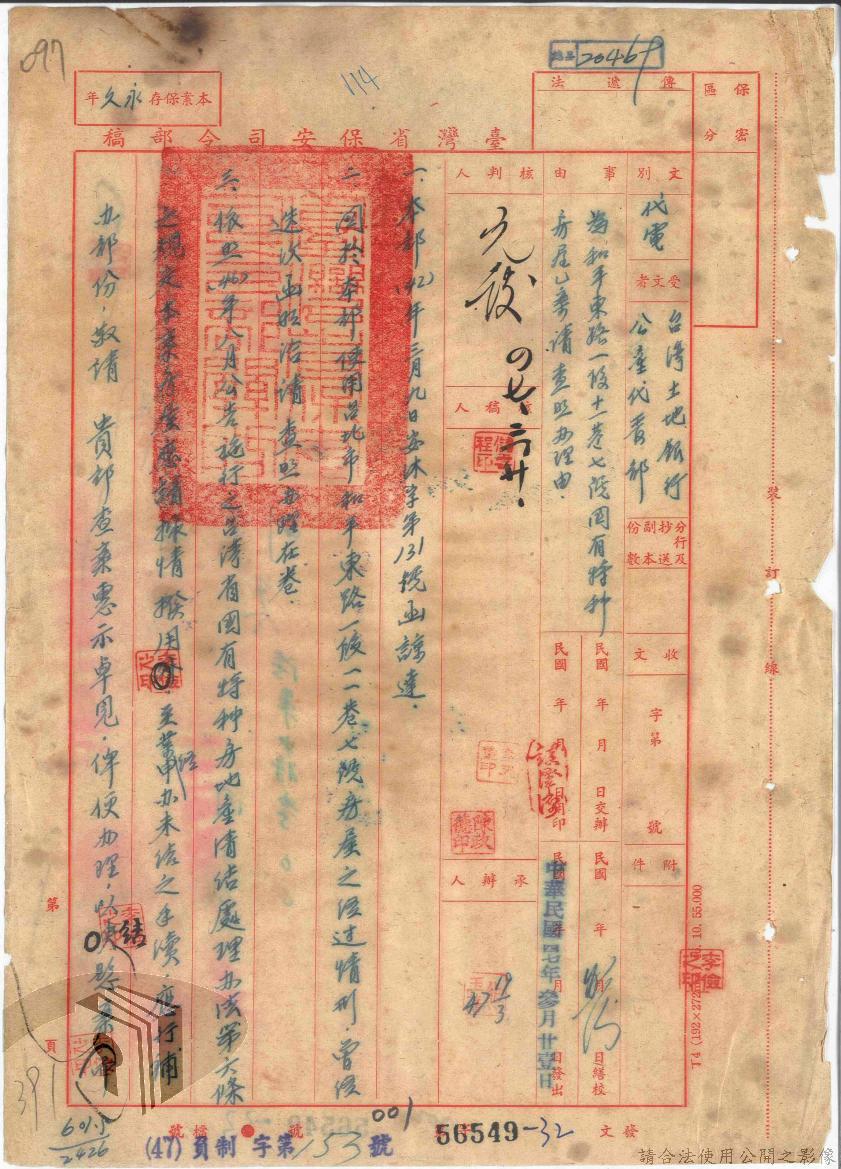 097
114
總收 20469
本案保存永久年
傳遞法
保密區分
臺灣省保安司令部稿
文別
代電
受文者
台灣土地銀行
公產代管部
分行及抄送副本份數
收文
字第
號
附件
事由
為和平東路一段十一巷七號國有特種
房屋乙棄請查照办理由
民國 年 月 日交辦
民國 年 月 日繕校
民國 年 月 日用印
民國 年 月 日發出
中華民國四七年參月廿壹日
核判人
允發 四七、三、廿、
核稿人
承辦人
19/3
47
一、本部(42)年三月九日安沐字第131號函諒達。
二、關於本部使用台北市和平東路一段一一巷七號房屋之經過情形,曾經
迭次函照洽請查照办理在卷。
三、依照(46)年八月公告施行之台灣省國有特种房地產清結處理办法第六條
之規定本案房屋應請撥用。至業經申办未結之手續,應行補
办部份,敬請 貴部查案惠示卓見,俾便办理,以
結
裝
訂
線
第
頁
T4 (192×272) 10. 55.000
李儉之印
陳政德印
391
6015
2426
檔號
001
(47)頁制字第153號
發文
56549-32
請合法使用公開之影像